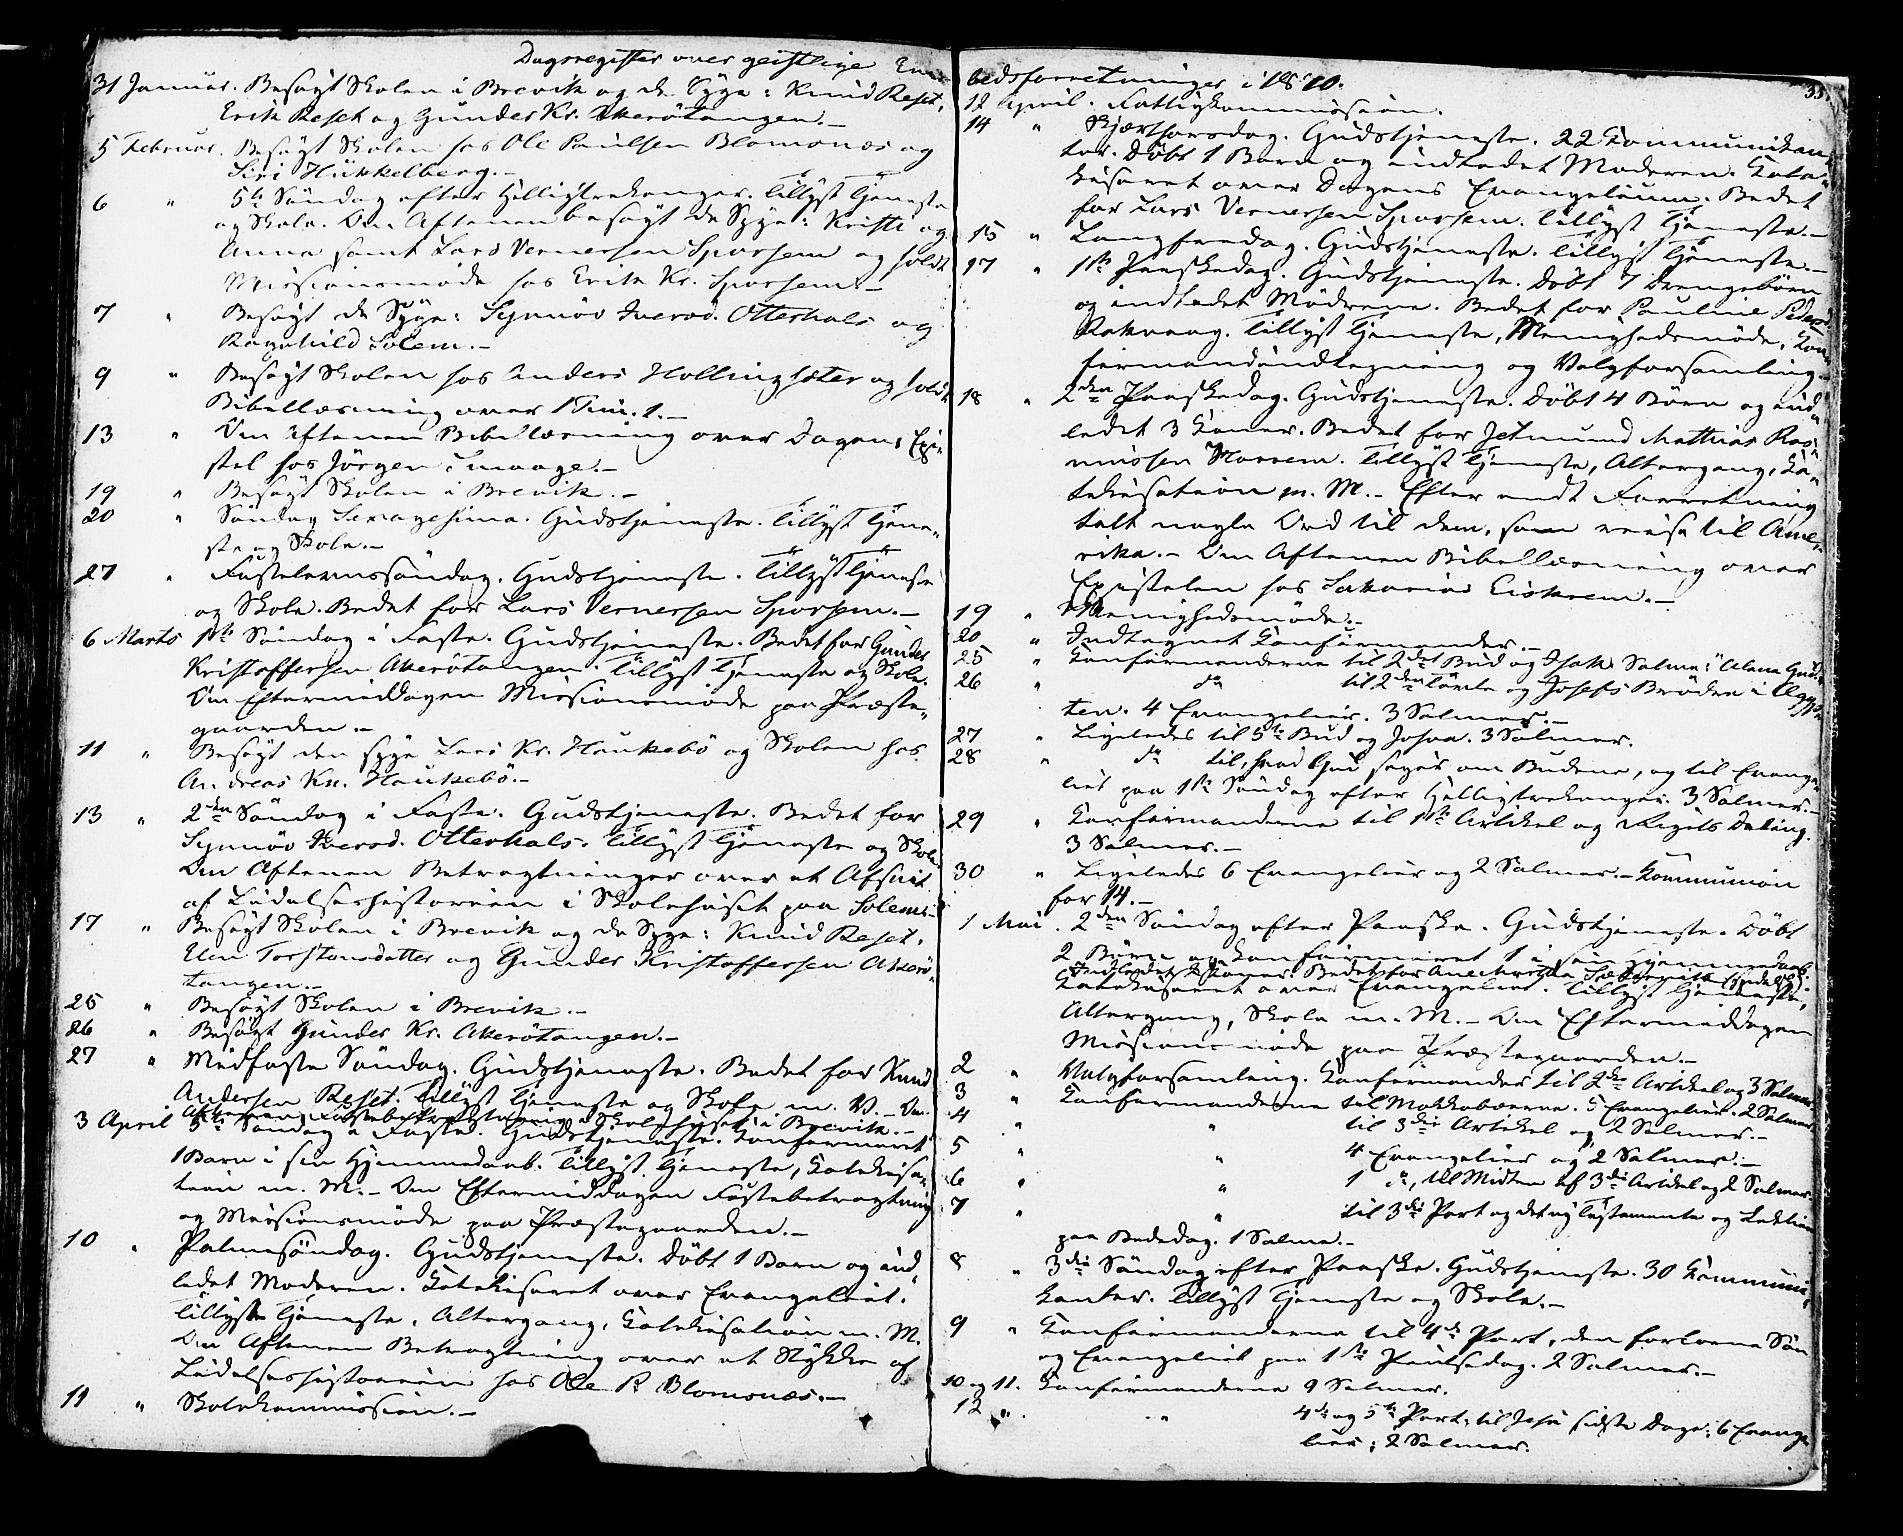 Dagsregister over geistlige Em-
31 Januar. Besøgt Skolen i Brevik og de Syge: Knud Reset,
Erik Reset og Gunder Kr. Akerötangen.-
5 Februar. Besøgt Skolen hos Ole Paulsen Blomsnæs og
Siri Hukkelberg.-
6 " 5te Søndag efter Helligtrekonger. Tillyst Tjeneste
og Skole. Om Aftenen besøgt de Syge: Kristi og
Anna samt Lars Vernersen Sporsem og holdt
Missionsmøde hos Erik Kr. Sporsem.-
7 " Besøgt de Syge: Synnøv Iversd. Otterhals og
Ragnhild Solem.-
9 " Besøgt Skolen hos Anders Hollingsæter og holdt
Bibellæsning over 1 Tim. 1.-
13 " Om Aftenen Bibellæsning over Dagens Epi-
stel hos Jörgen Smaage.-
19 " Besøgt Skolen i Brevik.-
20 " Søndag Sexagesima. Gudstjeneste. Tillyst Tjene-
ste og Skole.-
27 " Fastelavnssøndag. Gudstjeneste. Tillyst Tjeneste
og Skole. Bedet for Lars Vernersen Sporsem.-
6 Marts 1ste Søndag i Faste. Gudstjeneste. Bedet for Gunder
Kristoffersen Akerötangen. Tillyst Tjeneste og Skole.
Om Eftermiddagen Missionsmøde paa Præste-
gaarden.-
11 " Besøgt den syge Lars Kr. Haukebö og Skolen hos
Andreas Kn. Haukebö.-
13 " 2den Søndag i Faste. Gudstjeneste. Bedet for
Synnøv Iversd. Otterhals. Tillyst Tjeneste og Skole
Om Aftenen Betragtninger over et Afsnit
af Lidelseshistorien i Skolehuset paa Solem.-
17 " Besøgt Skolen i Brevik og de Syge: Knud Reset,
Elen Torstensdatter og Gunder Kristoffersen Akerö-
tangen.-
25 " Besøgt Skolen i Brevik.-
26 " Besøgt Gunder Kr. Akerötangen.-
27 " Midfaste Søndag. Gudstjeneste. Bedet for Knud
Andersen Reset. Tillyst Tjeneste og Skole m. V.- Om
Aftenen Fastebetragtning i Skolehuset i Brevik.-
3 April 5te Søndag i Faste. Gudstjeneste. Konfirmeret
1 Barn i sin Hjemmedaab. Tillyst Tjeneste, Katekisa-
tion m. M.- Om Eftermiddagen Fastebetragtning
og Missionsmøde paa Præstegaarden.-
10 " Palmesøndag. Gudstjeneste. Døbt 1 Barn og ind-
ledet Moderen. Katekiseret over Evangeliet.
Tillyst Tjeneste, Altergang, Katekisation m. M.
Om Aftenen Betragtning over et Stykke af
Lidelseshistorien hos Ole P. Blomsnæs.-
11 " Skolekommission.-
bedsforretninger i 1870.
35.
12 April. Fattigkommission.
14 " Skjærthorsdag. Gudstjeneste. 22 Kommunikan-
ter. Døbt 1 Barn og indledet Moderen. Kate-
kiseret over Dagens Evangelium. Bedet
for Lars Vernersen Sporsem. Tillyst Tjeneste.-
15 " Langfredag. Gudstjeneste. Tillyst Tjeneste.-
17 " 1ste Paaskedag. Gudstjeneste. Døbt 7 Drengebørn
og indledet Mødrene. Bedet for Pauline Peders.
Rakvaag. Tillyst Tjeneste, Menighedsmøde, Kon-
firmandindtegning og Valgforsamling.-
18 " 2den Paaskedag. Gudstjeneste. Døbt 4 Børn og ind-
ledet 3 Koner. Bedet for Jetmund Mathias Ras-
mussen Harrem. Tillyst Tjeneste, Altergang, Ka-
tekisation m. M.- Efter endt Forretning
talt nogle Ord til dem, som reise til Ame-
rika.- Om Aftenen Bibellæsning over
Epistelen hos Sakarias Eiskrem.-
19 " Menighedsmøde.-
20 " Indtegnet Konfirmander.-
25 " Konfirmanderne til 2det Bud og Isak. Salme: "Alene Gud
26 " do til 2den Tavle og Josefs Brødre i Ægyp-
ten. 4 Evangelier. 3 Salmer.-
27 " Ligeledes til 5te Bud og Josva. 3 Salmer.
28 " do til, hvad Gud siger om Budene, og til Evange-
liet paa 1ste Søndag efter Helligtrekonger. 3 Salmer.-
29 " Konfirmanderne til 1ste Artikel og Rigets Deling.
3 Salmer.-
30 " Ligeledes 6 Evangelier og 2 Salmer.- Kommunion
for 14.-
1 Mai. 2den Søndag efter Paaske. Gudstjeneste. Døbt
2 Børn og konfirmeret 1 i sin Hjemmedaab.
Indledet 2 Koner. Bedet for
Katekiseret over Evangeliet. Tillyst Tjeneste,
Altergang, Skole m. M.- Om Eftermiddagen
Missionsmøde paa Præstegaarden.-
2 " Valgforsamling. Konfirmander til 2den Artikel og 3 Salmer
3 " Konfirmanderne til Makkabæerne. 5 Evangelier. 2 Salmer
4 " " til 3die Artikel og 2 Salmer.-
5 " " 4 Evangelier og 2 Salmer.-
6 " " 1 do, til Midten af 3die Artikel og 2 Salmer.
7 " " til 3die Part og det nye Testamente og Lektien
paa Bededag. 1 Salme.-
8 " 3die Søndag efter Paaske. Gudstjeneste. 30 Kommuni-
kanter. Tillyst Tjeneste og Skole.-
9 " Konfirmanderne til 4de Part, den forlorne Søn
og Evangeliet paa 1ste Pintsedag. 2 Salmer.-
10 og 11. Konfirmanderne 9 Salmer.
12 " " 4de og 5te Part; til Jesu sidste Dage; 6 Evange-
lier; 2 Salmer.